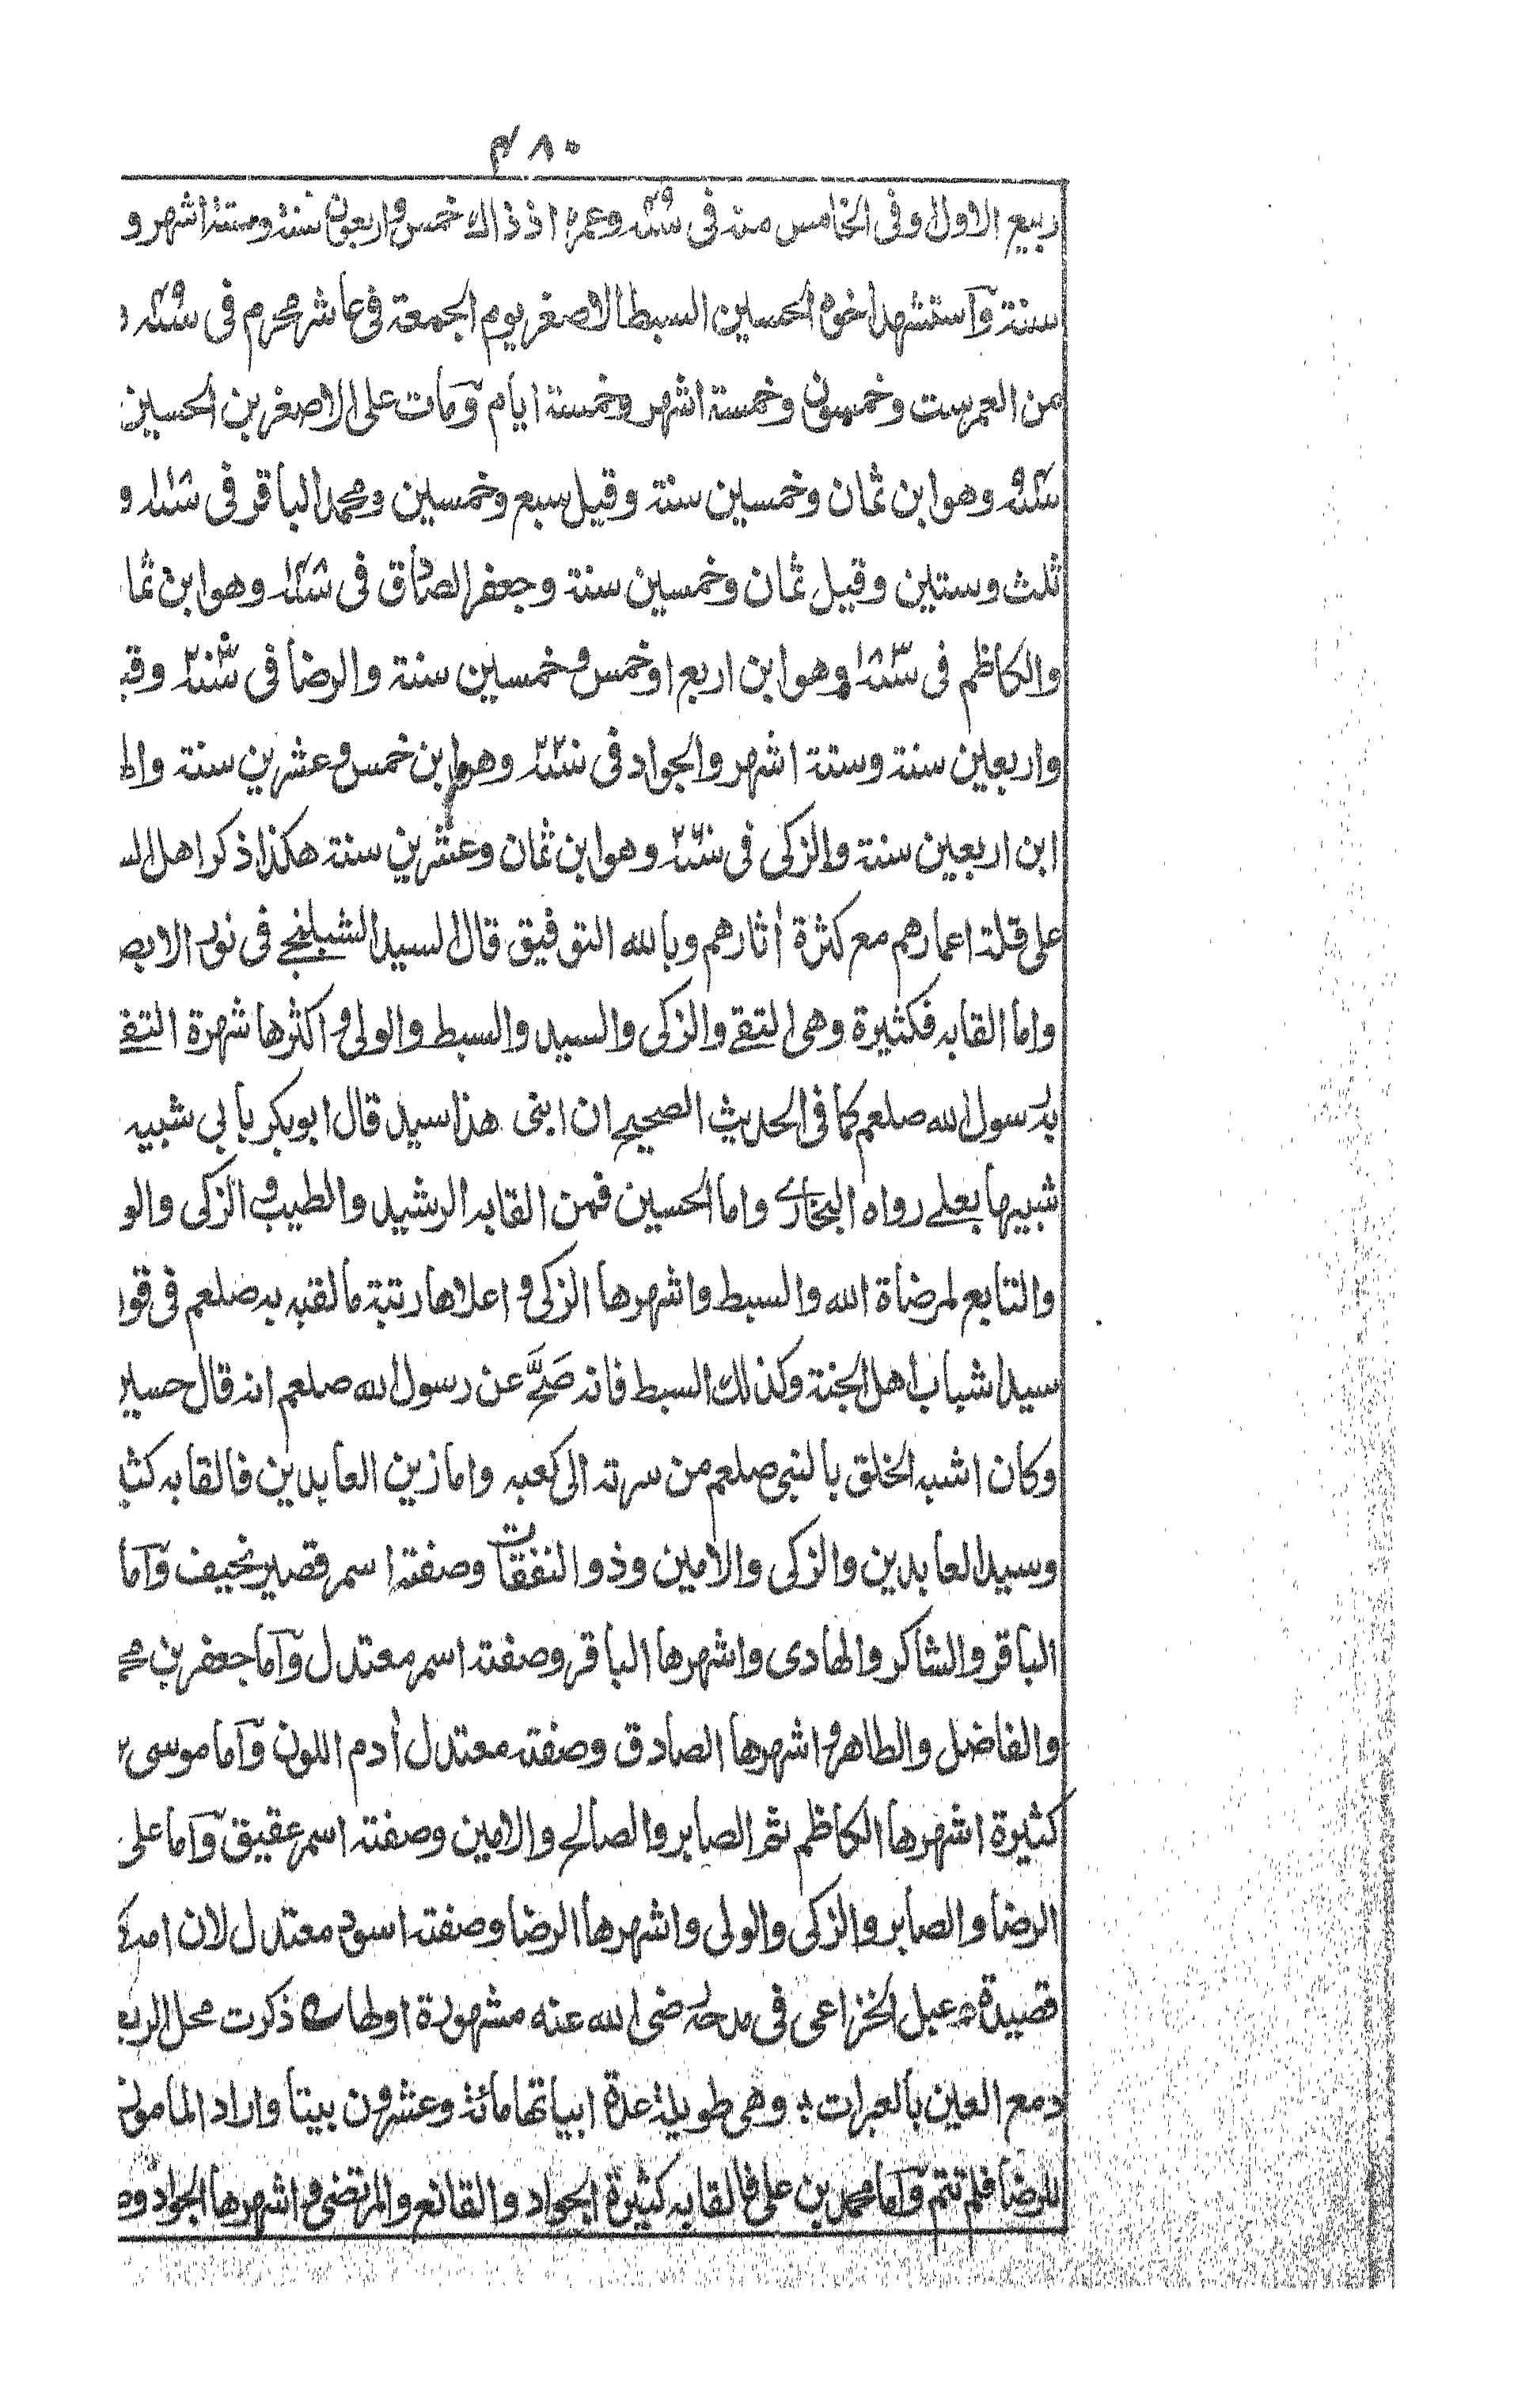 ٤٨٠
ربيع الاول وفى الخامس منه فى سنة ٤٩ وعمره اذ ذاك خمس واربعون سنة وستة اشهر و
سنة وآستشهد اخوه الحسين السبط الاصغر يوم الجمعة فى عاشر محرم فى سنة
من العمر ست وخمسون وخمسة اشهر وخمسة ايام ومات على الاصغر بن الحسين
سنة ٩٤ وهو ابن ثمان وخمسين سنة وقيل سبع وخمسين ومحمد الباقر فى سنة و
ثلث وستين وقيل ثمان وخمسين سنة وجعفر الصادق فى سنة وهو ابن ثما
والكاظم فى سنة ١٨٣ وهو ابن اربع اوخمس وخمسين سنة والرضا فى سنة ٢٠٣ وقيـ
واربعين سنة وستة اشهر والجواد فى سنة ٢٢٠ وهو ابن خمس وعشرين سنة والـ
ابن اربعين سنة والزكى فى سنة ٢٦٠ وهو ابن ثمان وعشرين سنة هكذا ذكر اهل الـ
على قلة اعمارهم مع كثرة أثارهم وبالله التوفيق قال السيد الشبلنجے فى نور الابصـ
واما القابه فكثيرة وهى التقے والزكى والسيد والسبط والولى واكثرها شهرة التقـ
به رسول الله صلعم كما فى الحديث الصحيح ان ابنى هذا سيد قال ابو بكر بابي شبيه
شبيها بعلے رواه البخارے واما الحسين فمن القابه الرشيد والطيب والزكى والو
والتابع لمرضاة الله والسبط واشهرها الزكى واعلاها رتبة ما لقبه به صلعم فى قو
سيدا شباب اهل الجنة وكذلك السبط فانه صَحَّ عن رسول الله صلعم انه قال حسين
وكان اشبه الخلق بالنبى صلعم من سرته الى كعبه واما زين العابدين فالقابه كثيـ
وسيد العابدين والزكى والامين وذو النفقات وصفته اسمر قصير نحيف وآما
الباقر والشاكر والهادى واشهرها الباقر وصفته اسمر معتدل وآما جعفر بن محـ
والفاضل والطاهر واشهرها الصادق وصفته معتدل أدم اللون وآما موسى بـ
كثيرة اشهرها الكاظم ثم الصابر والصالح والامين وصفته اسمر عقيق وآما على
الرضا والصابر والزكى والولى واشهرها الرضا وصفته اسود معتدل لان امه
قصيدة دعبل الخزاعى فى مدحه رضى الله عنه مشهورة اولها ذكرت محل الربـ
دمع العين بالعبرات ؞ وهى طويلة عدة ابياتها مائة وعشرون بيتا واراد المامون
للرضا فلم تتم وآما محمد بن على فالقابه كثيرة الجواد والقانع والمرتضى واشهرها الجواد وصـ